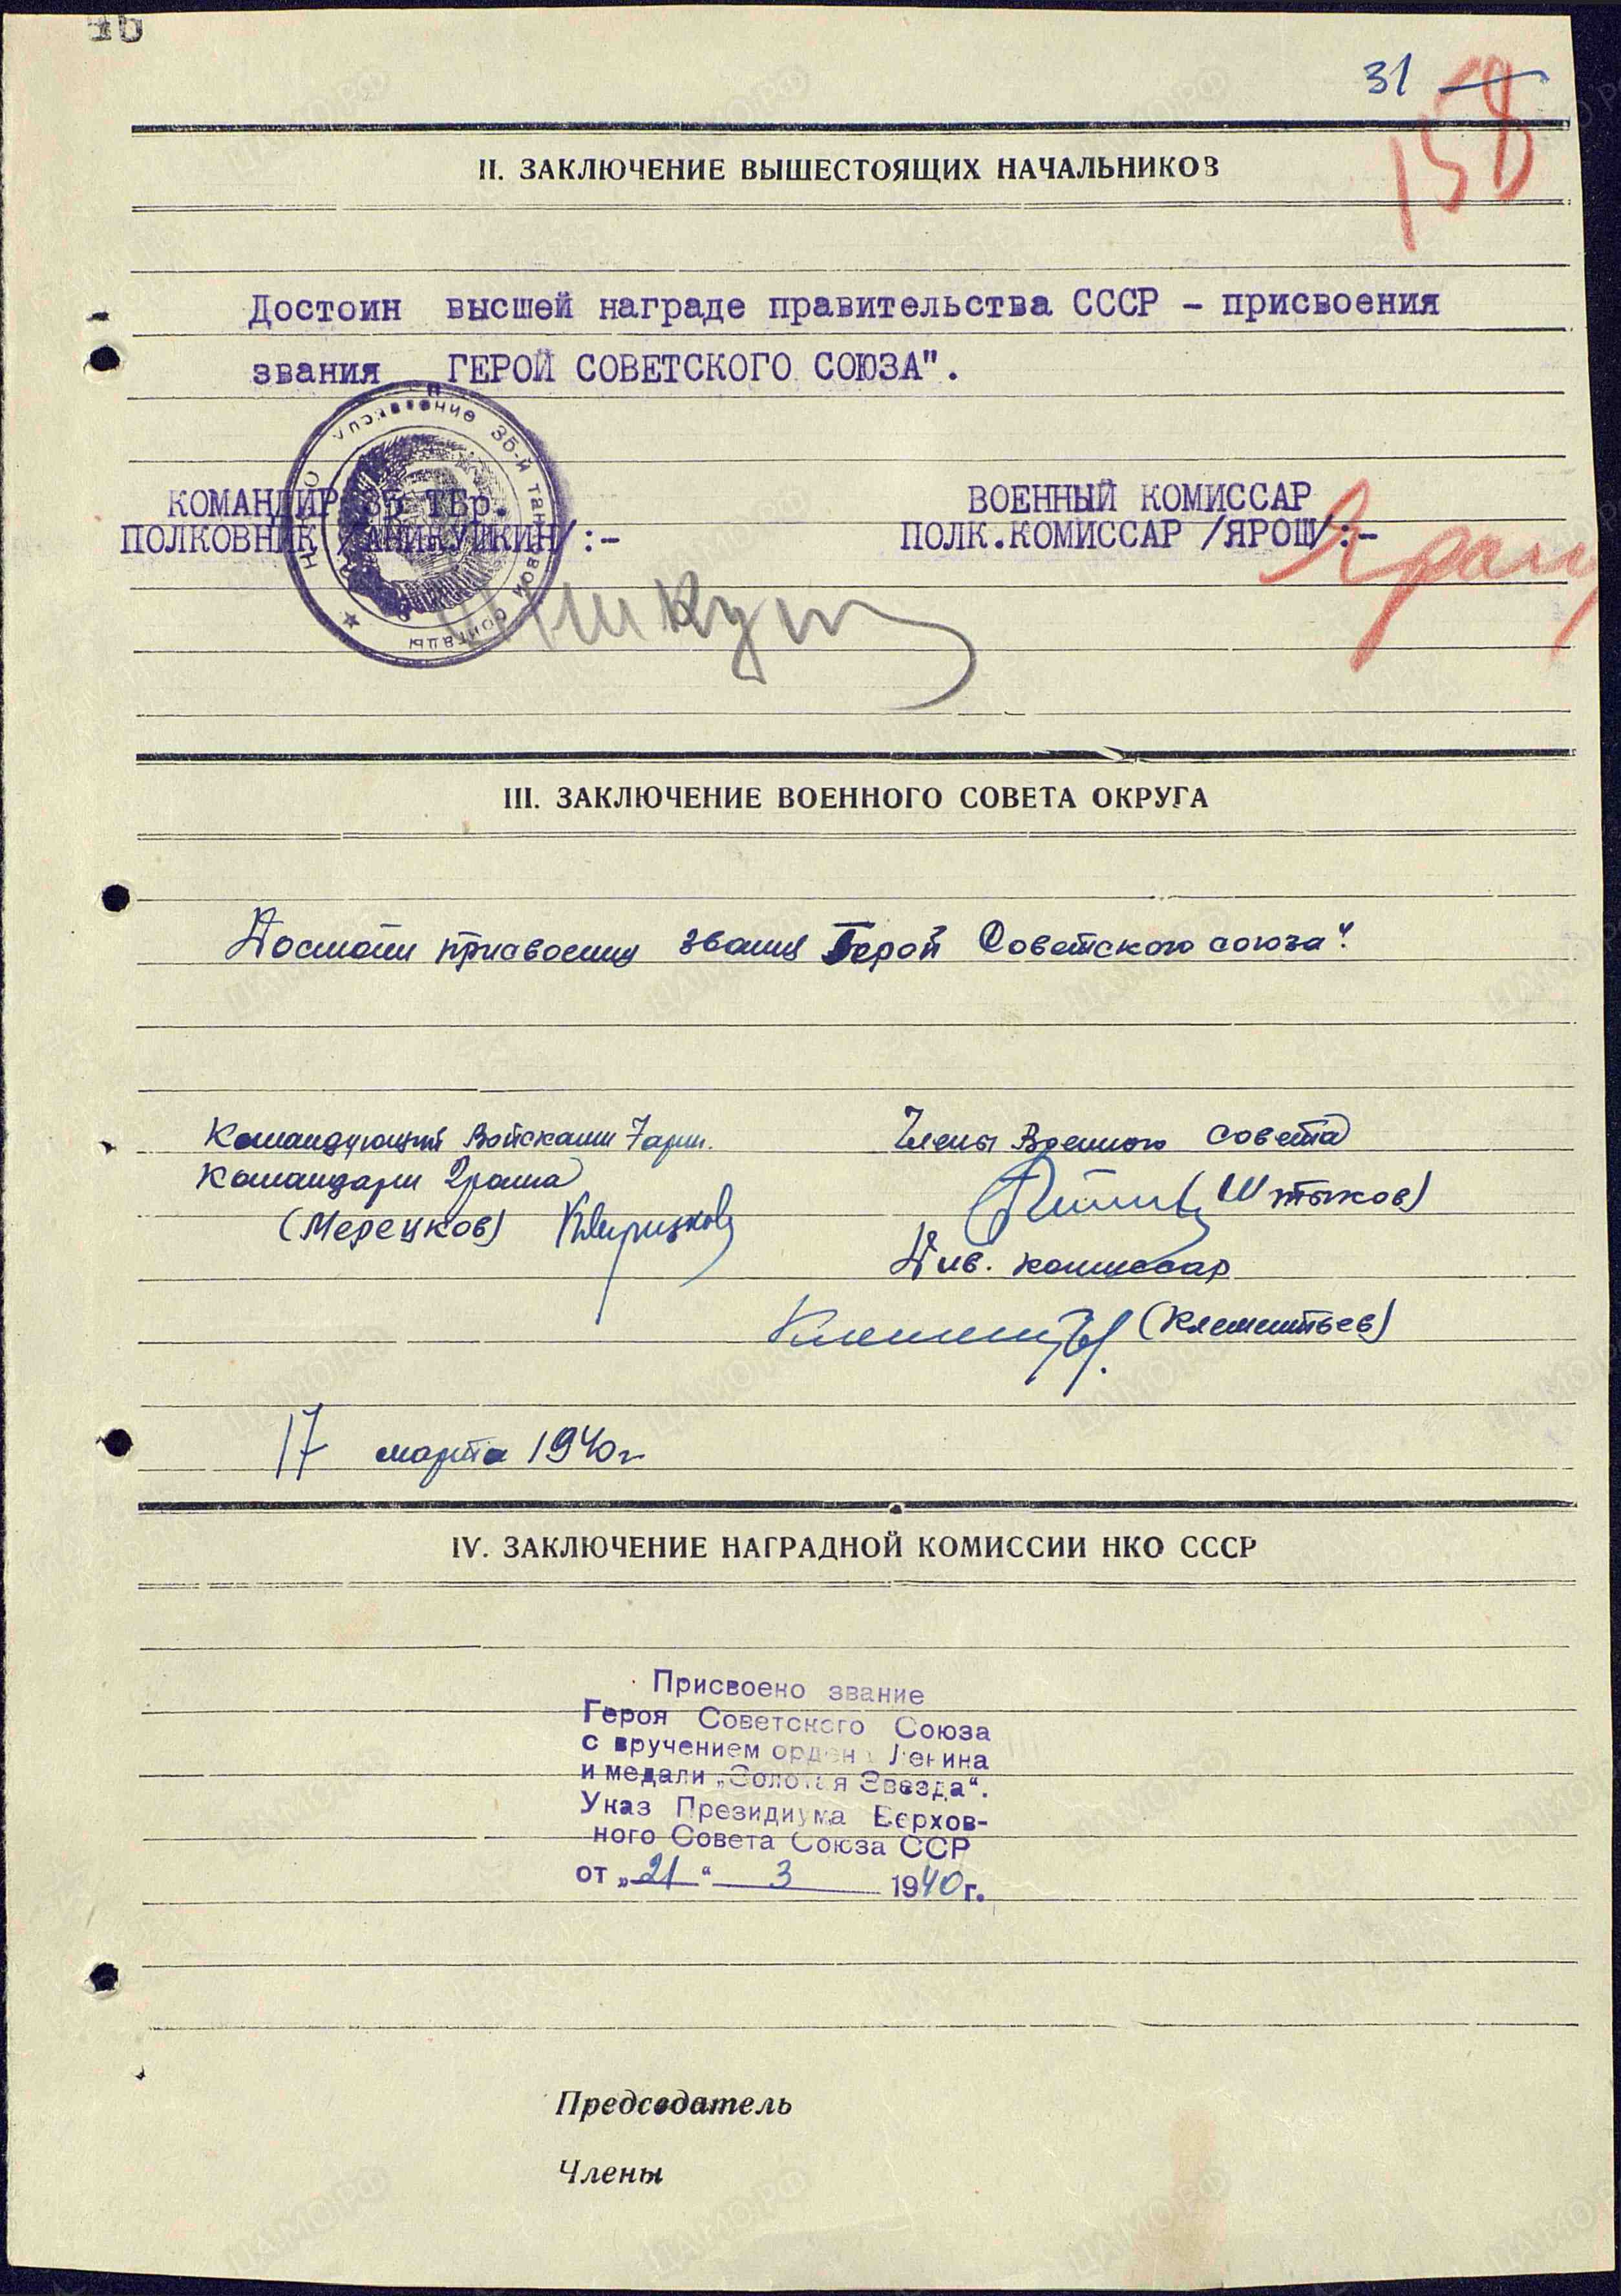 31
158
II. ЗАКЛЮЧЕНИЕ ВЫШЕСТОЯЩИХ НАЧАЛЬНИКОВ
Достоин высшей награде правительства СССР - присвоения
звания ГЕРОЙ СОВЕТСКОГО СОЮЗА".
Управление 35-й танковой бригады
НКО
КОМАНДИР 35 ТБр.
ПОЛКОВНИК /АНИКУШКИН/:-
ВОЕННЫЙ КОМИССАР
ПОЛК.КОМИССАР /ЯРОШ/:-
III. ЗАКЛЮЧЕНИЕ ВОЕННОГО СОВЕТА ОКРУГА
Достоин присвоения звания Герой Советского союза".
Командующий Войсками 7 арм.
Командарм 2 ранга
(Мерецков)
Члены Военного совета
(Штыков)
Див. комиссар
(Клементьев)
17 марта 1940 г
IV. ЗАКЛЮЧЕНИЕ НАГРАДНОЙ КОМИССИИ НКО СССР
Присвоено звание
Героя Советского Союза
с вручением ордена Ленина
и медали „Золотая Звезда“.
Указ Президиума Верхов-
ного Совета Союза ССР
от „21“ 3 1940 г.
Председатель
Члены